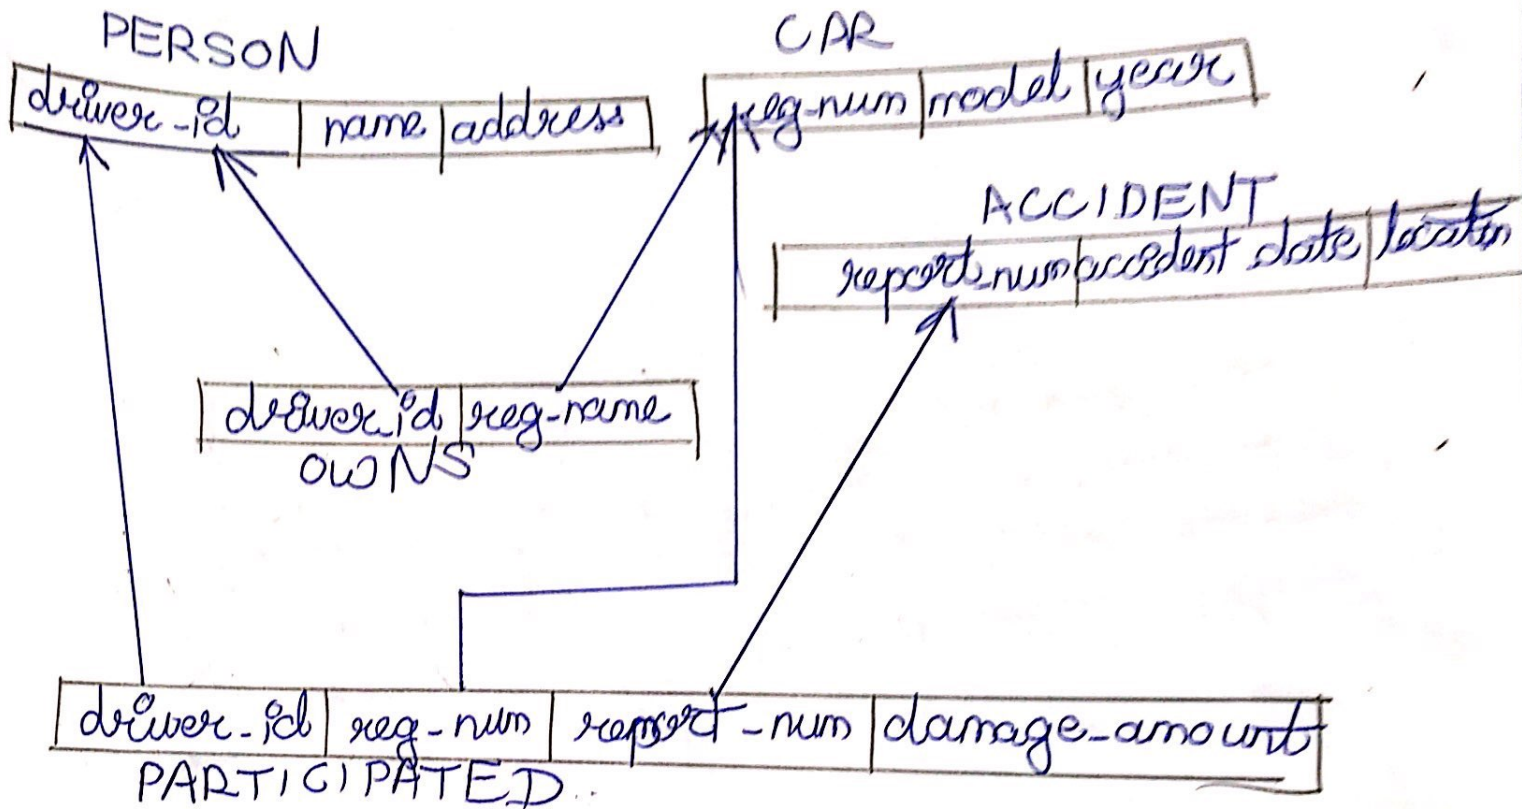 PERSON
driver-id name address
CAR
reg-num model year
ACCIDENT
report-num accident date locatin
driver-id reg-name
OWNS
driver-id reg-num report-num damage-amount
PARTICIPATED